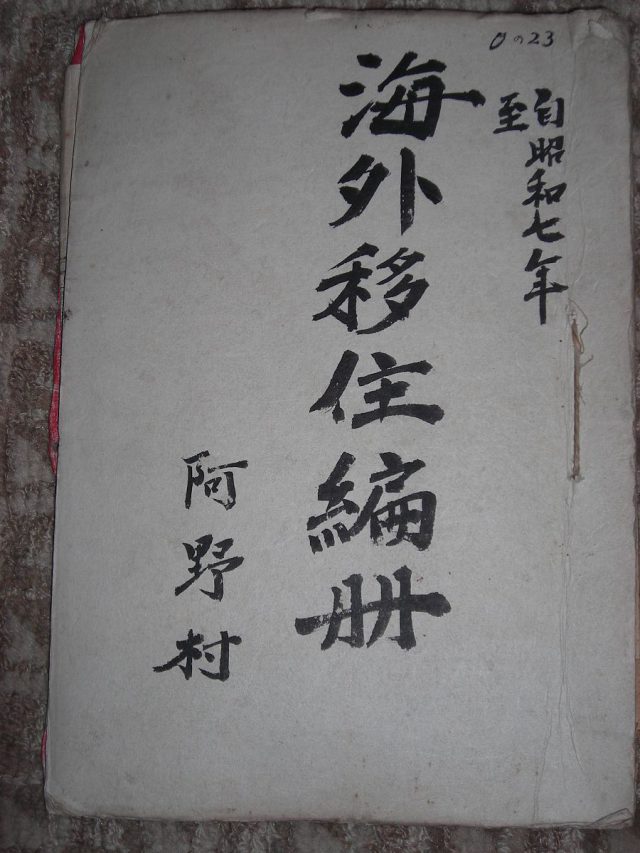 0の23
自昭和七年
至
海外移住編册
阿野村